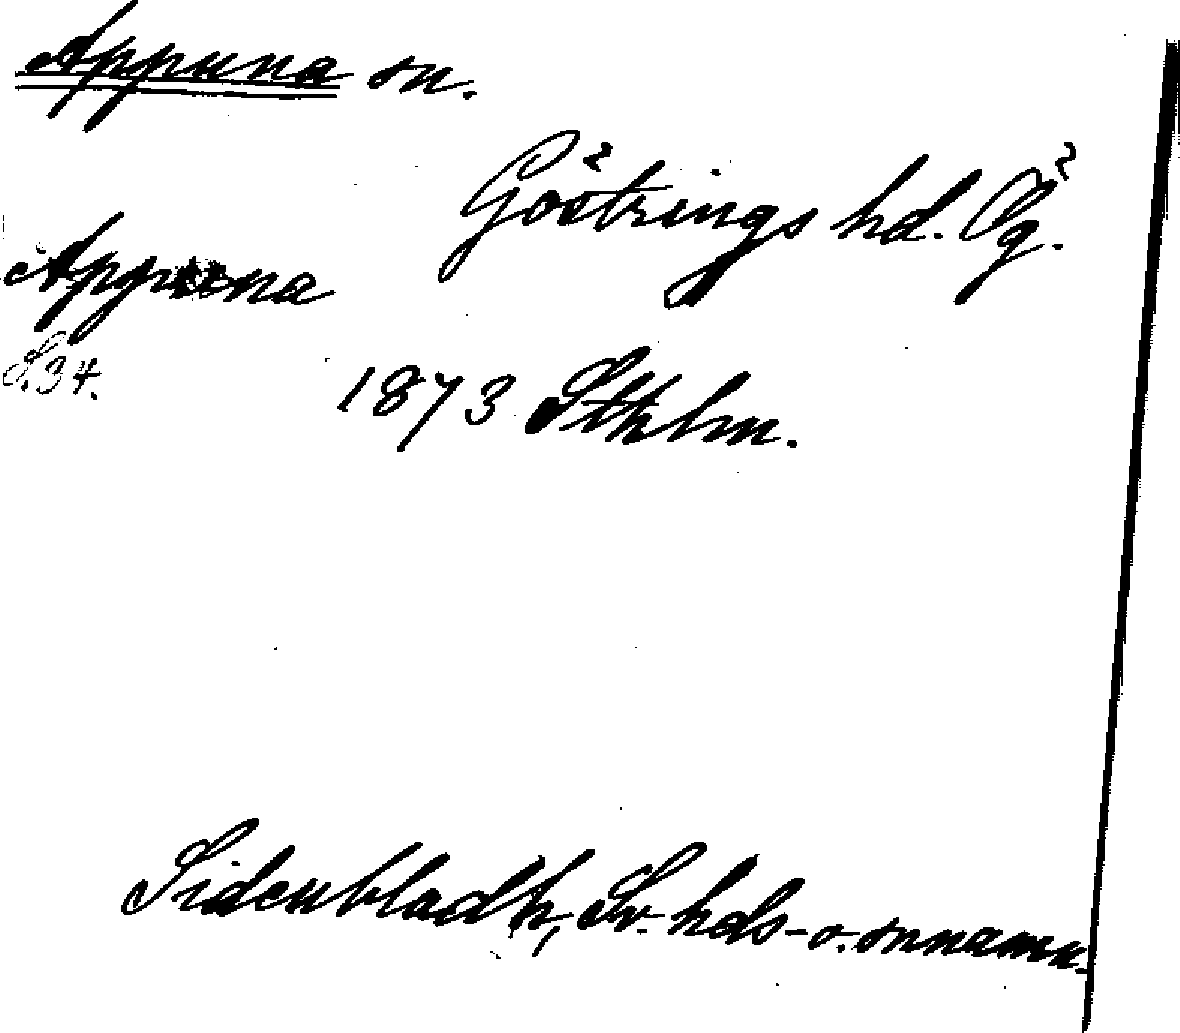 Appuna sn.
Göstrings hd. Ög.
Appuna
S. 34.
1873 Sthlm.
Sidenbladh, Sv. hds- o. snnamn.